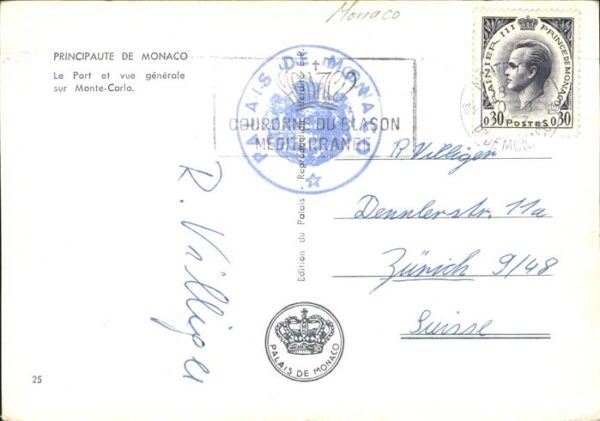 Monaco
PRINCIPAUTE DE MONACO
Le Port et vue générale
sur Monte-Carlo.
PALAIS DE MONACO
COURONNE DU BLASON
MEDITERRANEE
RAINIER III PRINCE DE MONACO
0,30 POSTES 0,30
R. Villiger
Dennlerstr. 11a
Zürich 9/48
Suisse
R. Villiger
Edition du Palais - Reproduction Interdite
PALAIS DE MONACO
25